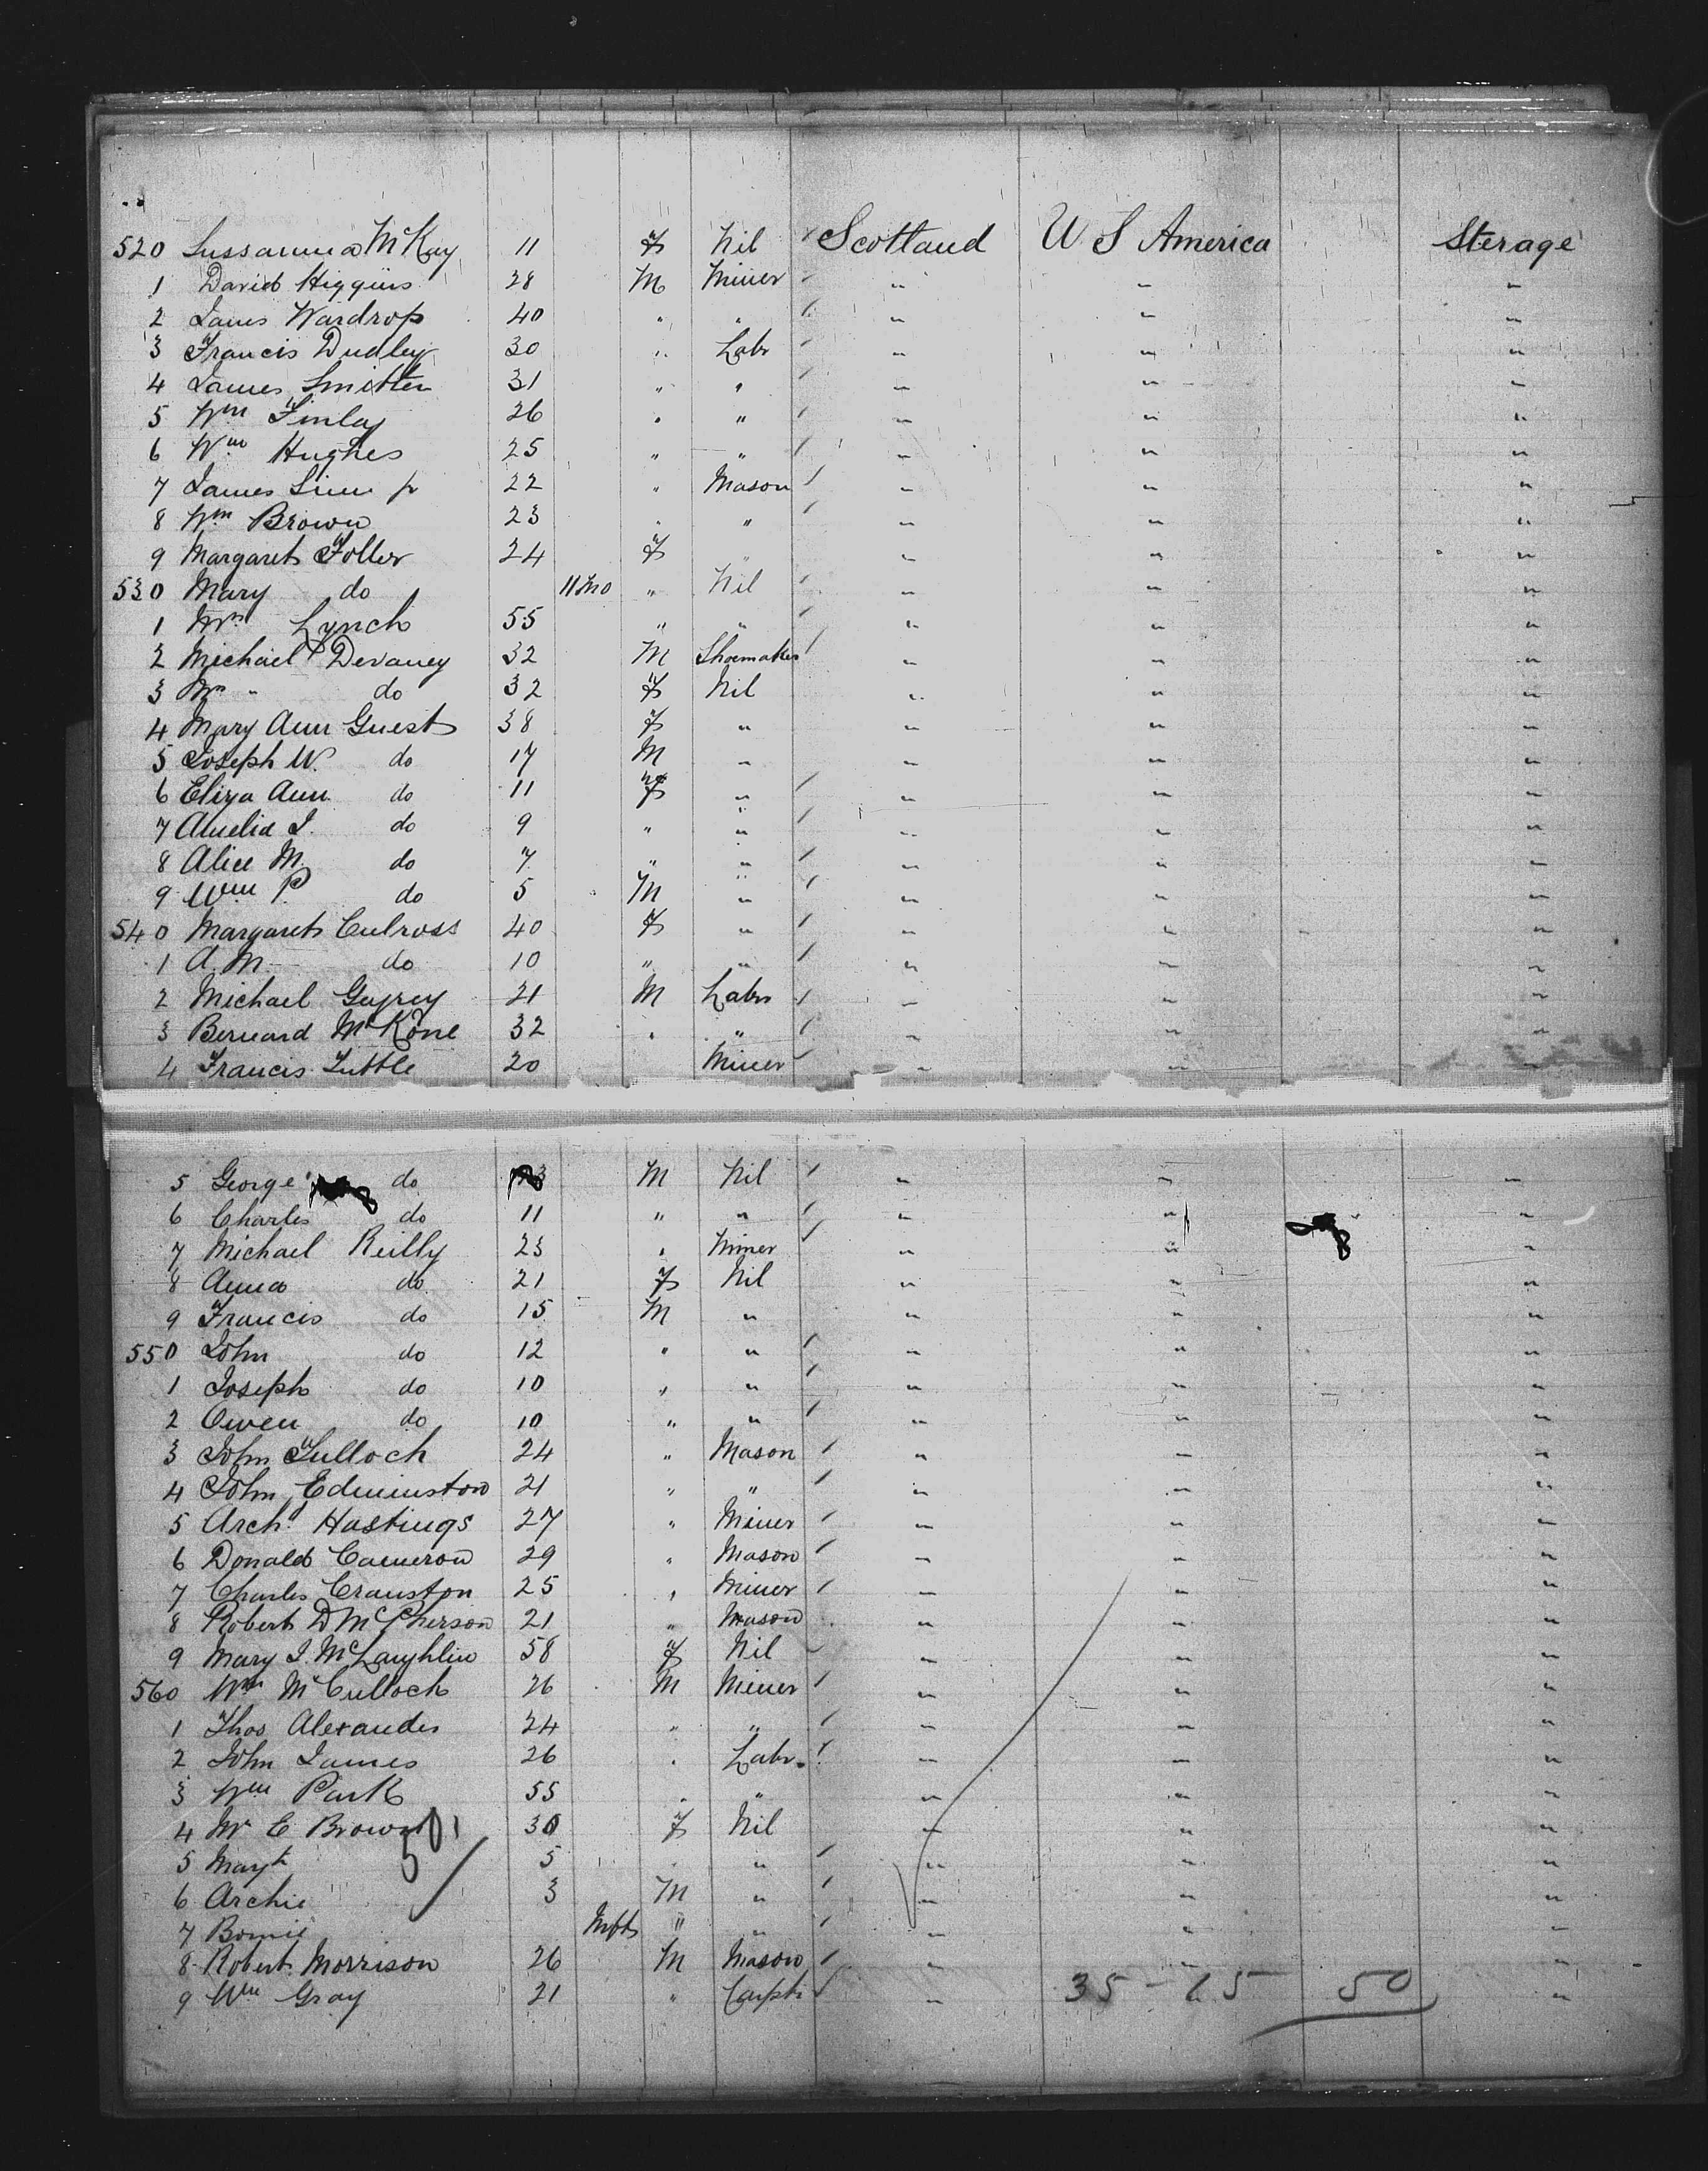 520 Sussanna McKay 11 F Nil Scotland U S America Sterage
1 David Higgins 28 M Miner " " "
2 James Wardrop 40 " " " " "
3 Francis Dudley 30 " Labr " " "
4 James Smitten 31 " " " " "
5 Wm Finlay 26 " " " " "
6 Wm Hughes 25 " " " " "
7 James Sim jr 22 " Mason " " "
8 Wm Brown 23 " " " " "
9 Margaret Foller 24 F " " " "
530 Mary do 11 mo " Nil " " "
1 Mrs Lynch 55 " " " " "
2 Michael Devaney 32 M Shoemaker " " "
3 Mrs " do 32 F Nil " " "
4 Mary Ann Guest 38 F " " " "
5 Joseph W. do 17 M " " " "
6 Eliza Ann do 11 F " " " "
7 Amelia J. do 9 " " " " "
8 Alice M. do 7 " " " " "
9 Wm P. do 5 M " " " "
540 Margaret Culross 40 F " " " "
1 A. M. do 10 " " " " "
2 Michael 21 M Labr " " "
3 Bernard McKone 32 " " " " "
4 Francis Tuttle 20 Miner " " "
5 George do M Nil " " "
6 Charles do 11 " " " " "
7 Michael Reilly 23 " Miner " " "
8 Anna do 21 F Nil " " "
9 Francis do 15 M " " " "
550 John do 12 " " " " "
1 Joseph do 10 " " " " "
2 Owen do 10 " " " " "
3 John Tulloch 24 " Mason " " "
4 John Edminston 21 " " " " "
5 Archd Hastings 27 " Miner " " "
6 Donald Cameron 29 " Mason " " "
7 Charles Cranston 25 " Miner " " "
8 Robert D McPherson 21 " Mason " " "
9 Mary J. McLaughlin 58 F Nil " " "
560 Wm McCulloch 26 M Miner " " "
1 Thos Alexander 24 " " " " "
2 John James 26 " Labr " " "
3 Wm Park 55 " " " " "
4 Mr E Brown 30 F Nil " " "
50
5 Magt 5 " " " " "
6 Archie 3 M " " " "
7 Infts " " " " "
8 Robert Morrison 26 M Mason " " "
9 Wm Gray 21 " Carptr " 35 - 15 50 "